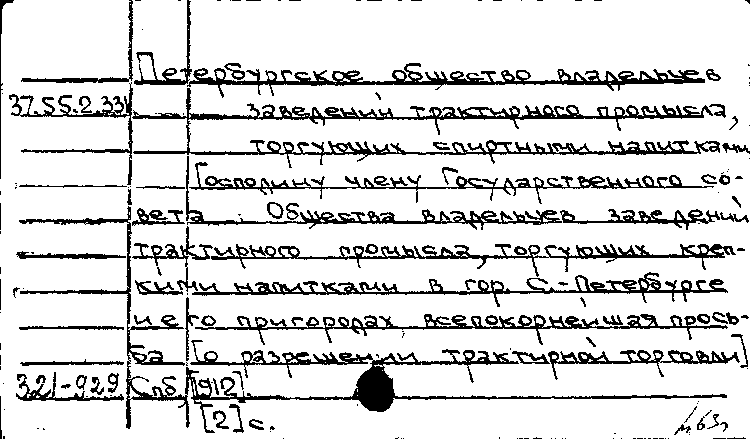 Петербургское общество владельцев
37.55.2.331 заведений трактирного промысла,
торгующих спиртными напитками
Господину члену Государственного со-
вета : Общества владельцев заведений
трактирного промысла, торгующих креп-
кими напитками в гор. С.-Петербурге
и его пригородах всепокорнейшая прось-
ба [о разрешении трактирной торговли]
321-929 Спб, [912].
[2] с.